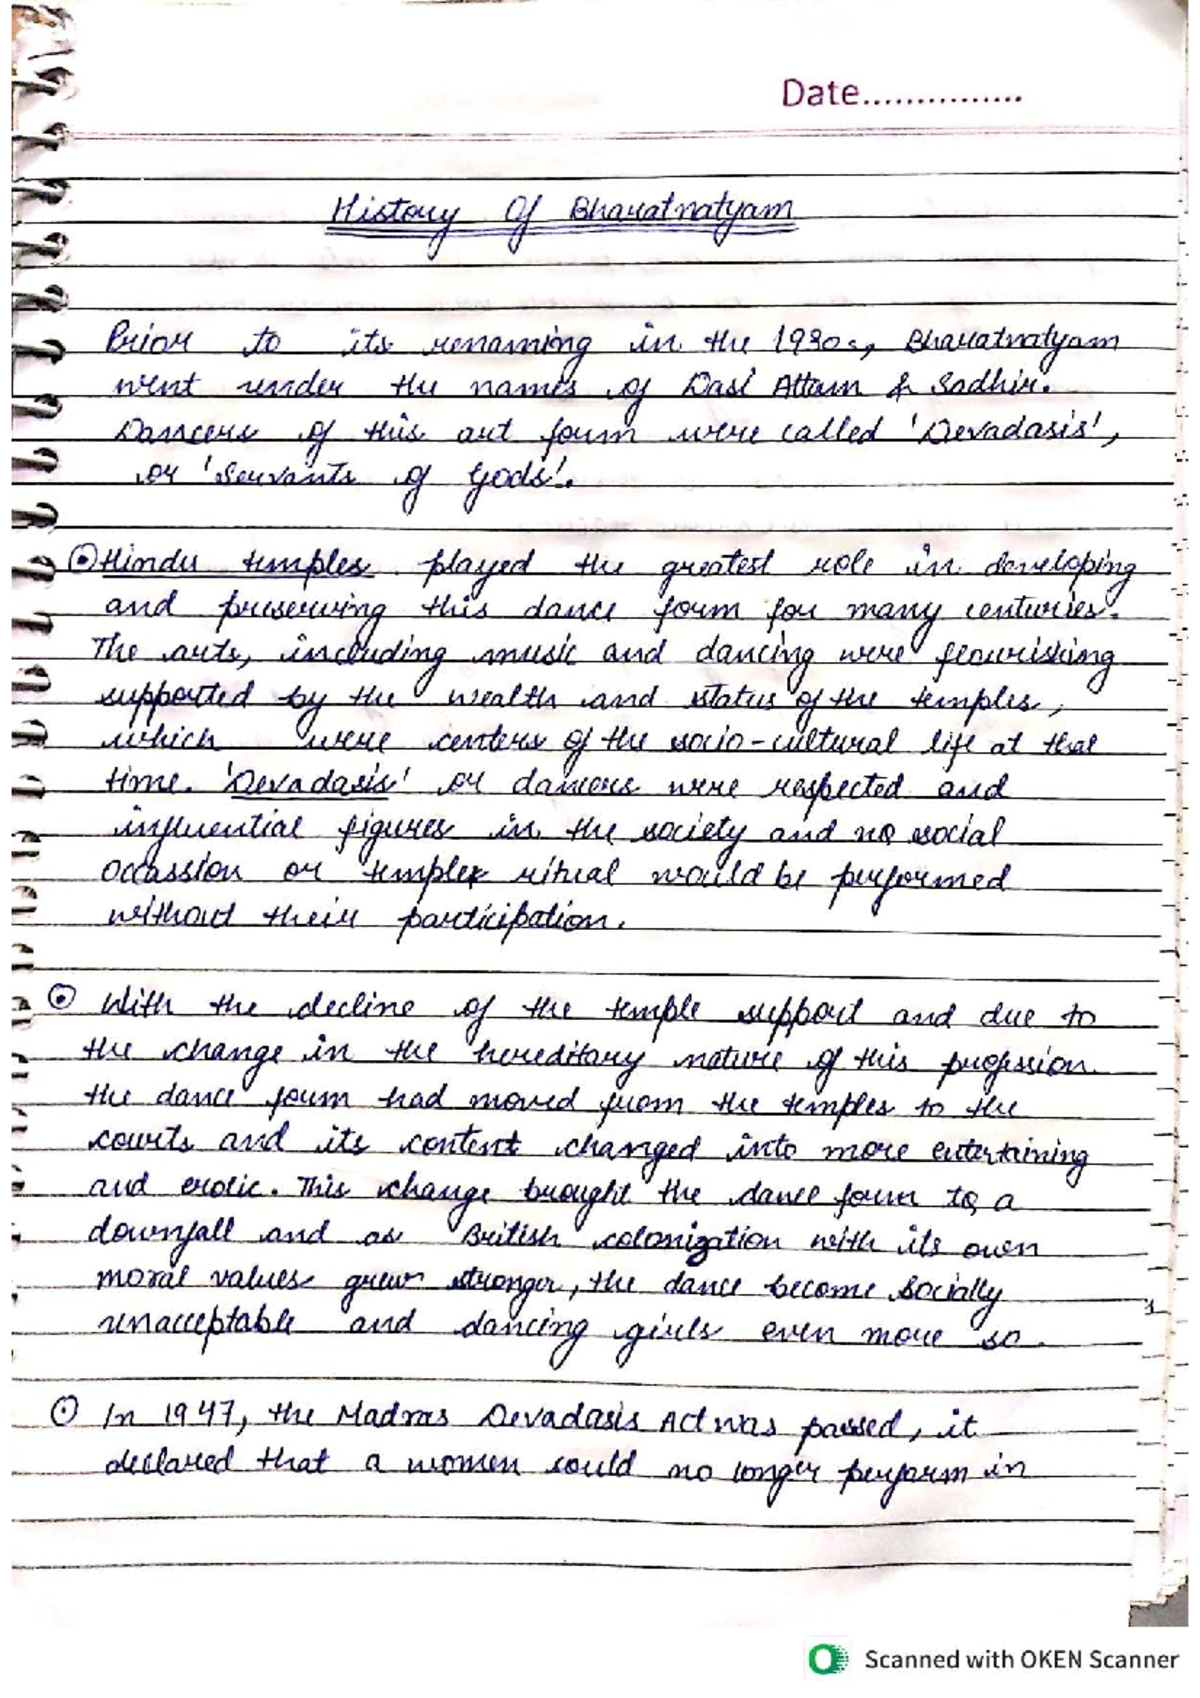 Date...............
History Of Bharatnatyam
Prior to its renaming in the 1930s, Bharatnatyam
went under the names of Dasi Attam & Sadhir.
Dancers of this art form were called 'Devadasis',
or 'Servants of Gods'.
⊙ Hindu temples played the greatest role in developing
and preserving this dance form for many centuries.
The arts, including music and dancing were flourishing
supported by the wealth and status of the temples,
which were centers of the socio-cultural life at that
time. 'Devadasis' or dancers were respected and
influential figures in the society and no social
occassion or temple ritual would be performed
without their participation.
⊙ With the decline of the temple support and due to
the change in the hereditary nature of this profession
the dance form had moved from the temples to the
courts and its content changed into more entertaining
and erotic. This change brought the dance form to a
downfall and as British colonization with its own
moral values grew stronger, the dance become socially
unacceptable and dancing girls even more so.
⊙ In 1947, the Madras Devadasis Act was passed, it
declared that a women could no longer perform in
Scanned with OKEN Scanner